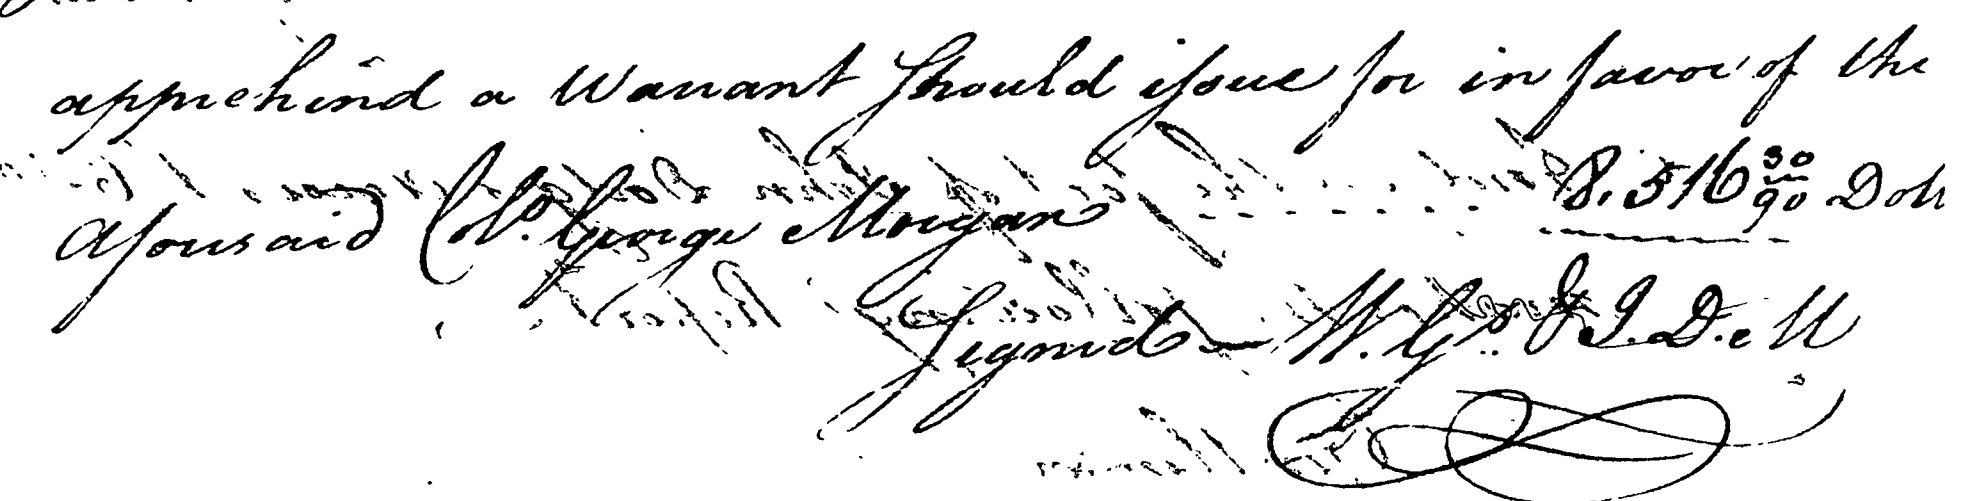 apprehend a Warrant should issue for in favor of the
Aforesaid Colo. George Morgan ........ 8.516 30/90 Doll
Signed — W. Go. & J. D. e M